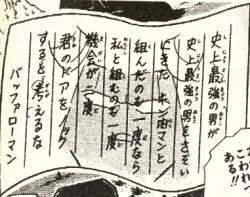 史上最強の男が
史上最強の男をさそい
にきた キン肉マンと
組んだのも一度なら
私と組むのも一度
機会が二度
君のドアをノック
すると考えるな
バッファローマン